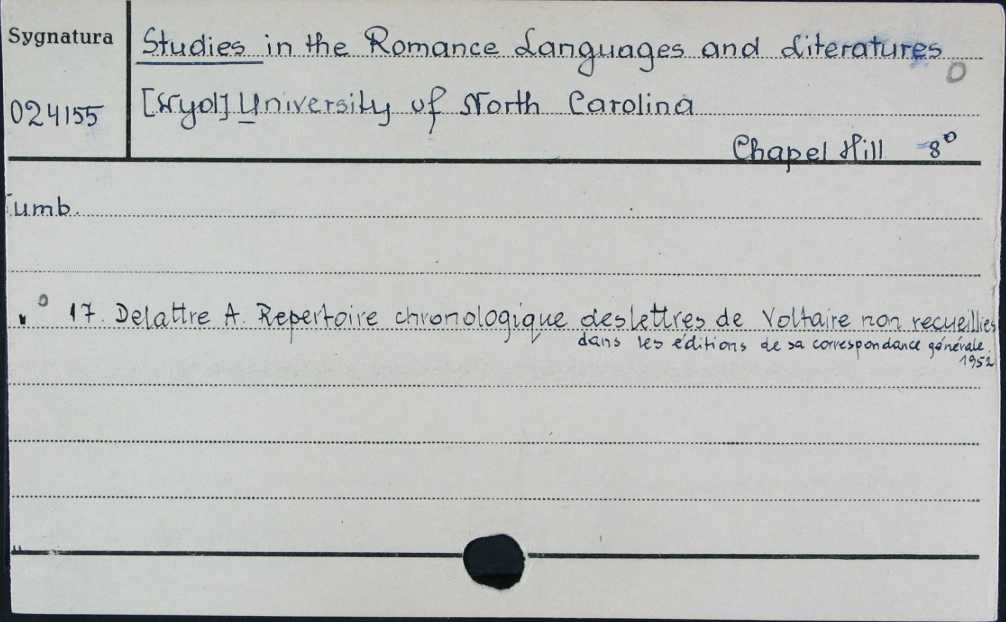 Sygnatura
024155
Studies in the Romance Languages and Literatures
[Wyd] University of North Carolina
Chapel Hill 8°
umb.
17. Delattre A. Repertoire chronologique des lettres de Voltaire non recueillies
dans les éditions de sa correspondance générale.
1952